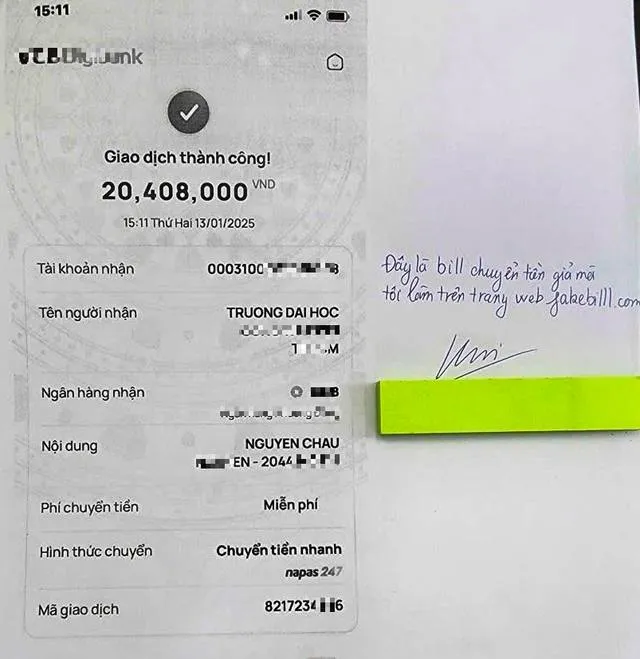 15:11
Giao dịch thành công!
20,408,000 VND
15:11 Thứ Hai 13/01/2025
Tài khoản nhận 0003100
Tên người nhận TRUONG DAI HOC
Ngân hàng nhận
Nội dung NGUYEN CHAU
EN - 2044
Phí chuyển tiền Miễn phí
Hình thức chuyển Chuyển tiền nhanh
napas 247
Mã giao dịch 8217234
Đây là bill chuyển tiền giả mà
tôi làm trên trang web fakebilll.com